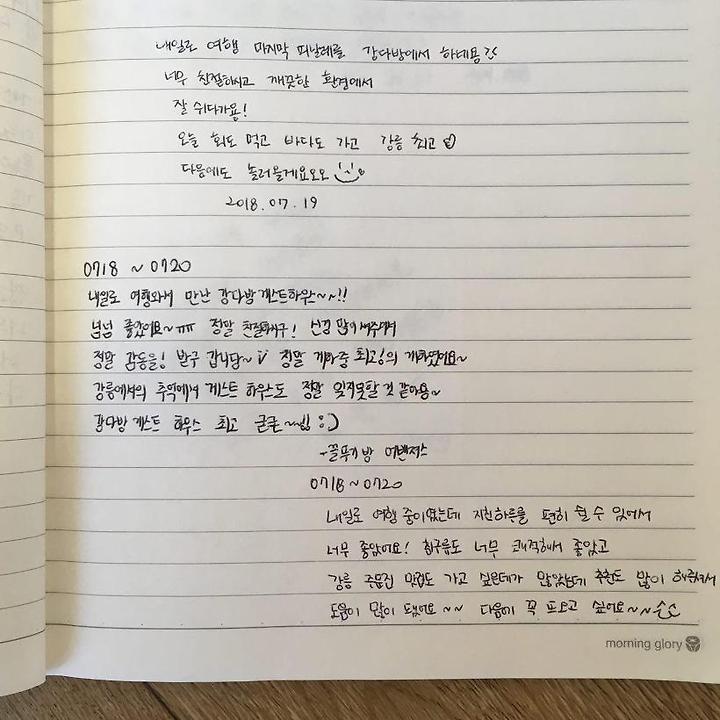 내일로 여행 마지막 피날레를 강다방에서 하네용
너무 친절하시고 깨끗한 환경에서
잘 쉬다가용!
오늘 회도 먹고 바다도 가고 강릉 최고
다음에도 놀러올게요오오
2018.07.19
0718 ~ 0720
내일로 여행와서 만난 강다방 게스트하우스~~!!
넘넘 좋았어요~ㅠㅠ 정말 친절하시구! 신경 많이써주셔서
정말 감동을! 받구 갑니담~ 정말 게하중 최고!의 게하였어요~
강릉에서의 추억에서 게스트 하우스도 정말 잊지못할 것 같아용~
강다방 게스트 하우스 최고 굳굳~입 :)
-꿀푸키방 어벤져스
0718~0720
내일로 여행 중이였는데 지친하루를 편히 쉴 수 있어서
너무 좋았어요! 침구류도 너무 쾌적해서 좋았고
강릉 주문진 맛집도 가고 싶은데가 많았는데 추천도 많이 해주셔서
도움이 많이 됐어요~~ 다음에 꼭 또오고 싶어요~~
morning glory